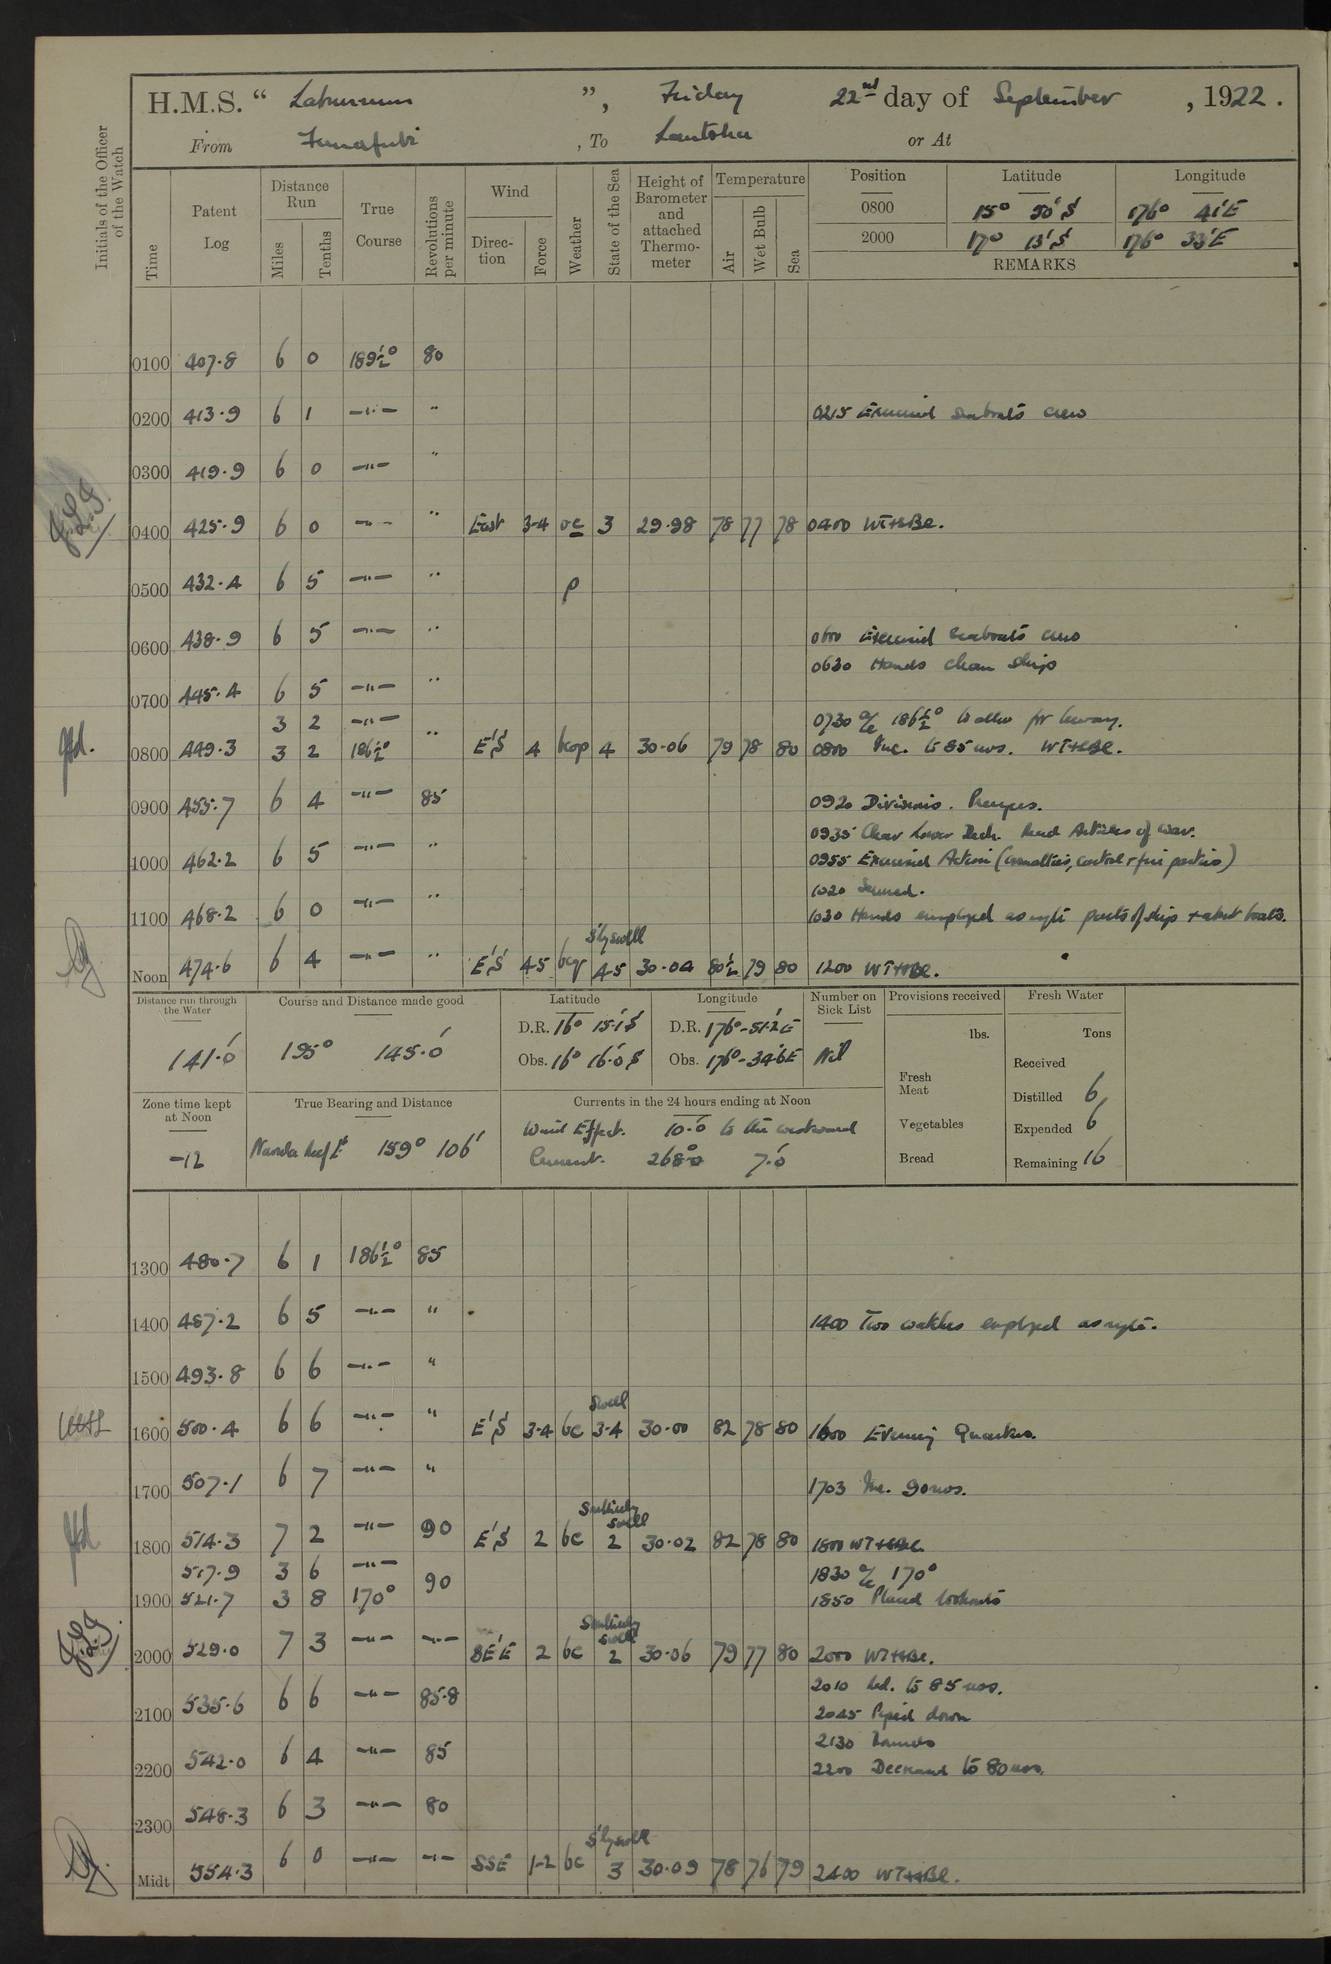 H.M.S. “ Laburnum ”, Friday 22nd day of September , 1922.
From Funafuti , To Lautoka or At
Initials of the Officer of the Watch
Time Patent Log Distance Run Miles Tenths True Course Revolutions per minute Wind Direction Force Weather State of the Sea Height of Barometer and attached Thermometer Temperature Air Wet Bulb Sea
Position Latitude Longitude
0800 15° 50' S 176° 41' E
2000 17° 13' S 176° 33' E
REMARKS
0100 407.8 6 0 189½° 80
0200 413.9 6 1 —"— " 0215 Exercised seaboats crew
0300 419.9 6 0 —"— "
0400 425.9 6 0 —"— " East 3-4 oc 3 29.98 78 77 78 0400 WT+LBC.
0500 432.4 6 5 —"— " p
0600 438.9 6 5 —"— " 0600 Exercised seaboats crew
0630 Hands clean ship
0700 445.4 6 5 —"— "
3 2 —"— 0730 a/c 186½° to allow for leeway.
0800 449.3 3 2 186½° " E'S 4 bcqp 4 30.06 79 78 80 0800 Inc. to 85 revs. WT+LBC.
0900 455.7 6 4 —"— 85 0920 Divisions. Prayers.
0935 Clear Lower Deck. Read Articles of War.
1000 462.2 6 5 —"— " 0955 Exercised Action (casualties, control + fire parties)
1020 Secured.
1100 468.2 6 0 —"— " 1030 Hands employed as reqte parts of ship + about boats.
S'ly swell
Noon 474.6 6 4 —"— " E'S 4-5 bcq 4-5 30.04 80½ 79 80 1200 WT+LBC.
Distance run through the Water Course and Distance made good Latitude Longitude Number on Sick List Provisions received Fresh Water
lbs. Tons
141.0 195° 145.0 D.R. 16° 15.1' S D.R. 176°-51.2' E Nil
Obs. 16° 16.0' S Obs. 176°-34.6' E Received
Fresh Meat Distilled 6
Zone time kept at Noon True Bearing and Distance Currents in the 24 hours ending at Noon
Vegetables Expended 6
-12 159° 106' Wind Effect. 10.0 to the westward
Current. 268° 7.0
Bread Remaining 16
1300 480.7 6 1 186½° 85
1400 487.2 6 5 —"— " 1400 Two watches employed as reqte.
1500 493.8 6 6 —"— "
Swell
1600 500.4 6 6 —"— " E'S 3-4 bc 3-4 30.00 82 78 80 1600 Evening Quarters.
1700 507.1 6 7 —"— " 1703 Inc. 90 revs.
Southerly swell
1800 514.3 7 2 —"— 90 E'S 2 bc 2 30.02 82 78 80 1800 WT+LBC
517.9 3 6 —"— 1830 a/c 170°
1900 521.7 3 8 170° 90 1850 Placed lookouts
Southerly swell
2000 529.0 7 3 —"— —"— SE'E 2 bc 2 30.06 79 77 80 2000 WT+LBC.
2010 Red. to 85 revs.
2100 535.6 6 6 —"— 85.8 2045 Piped down
2130 Rounds
2200 542.0 6 4 —"— 85 2200 Decreased to 80 revs.
2300 548.3 6 3 —"— 80
S'ly swell
Midt 554.3 6 0 —"— —"— SSE 1-2 bc 3 30.09 78 76 79 2400 WT+LBC.